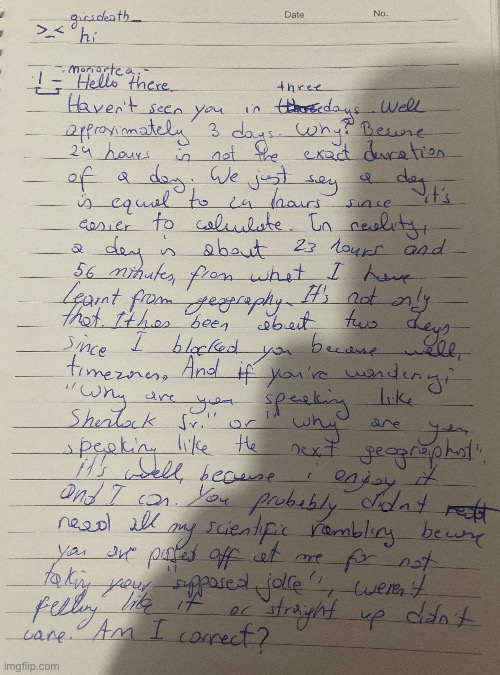 girlsdeath_
Date No.
>_< hi
-moriartea.-
Hello there.
three
Haven't seen you in days. Well
approximately 3 days. Why? Becuse
24 hours is not the exact duration
of a day. We just say a day
is equal to 24 hours since it's
easier to calculate. In reality,
a day is about 23 hours and
56 minutes, from what I have
learnt from geography. It's not only
that. It has been about two days
since I blocked you because well,
timezones. And if you're wondering;
"Why are you speaking like
Sherlock Jr." or "why are you
speaking like the next geographist".
it's well, because i enjoy it
and I can. You probably didn't
need all my scientific rambling becuse
you are pissed off at me for not
taking your "supposed joke", weren't
feeling like it or straight up didn't
care. Am I correct?
imgflip.com